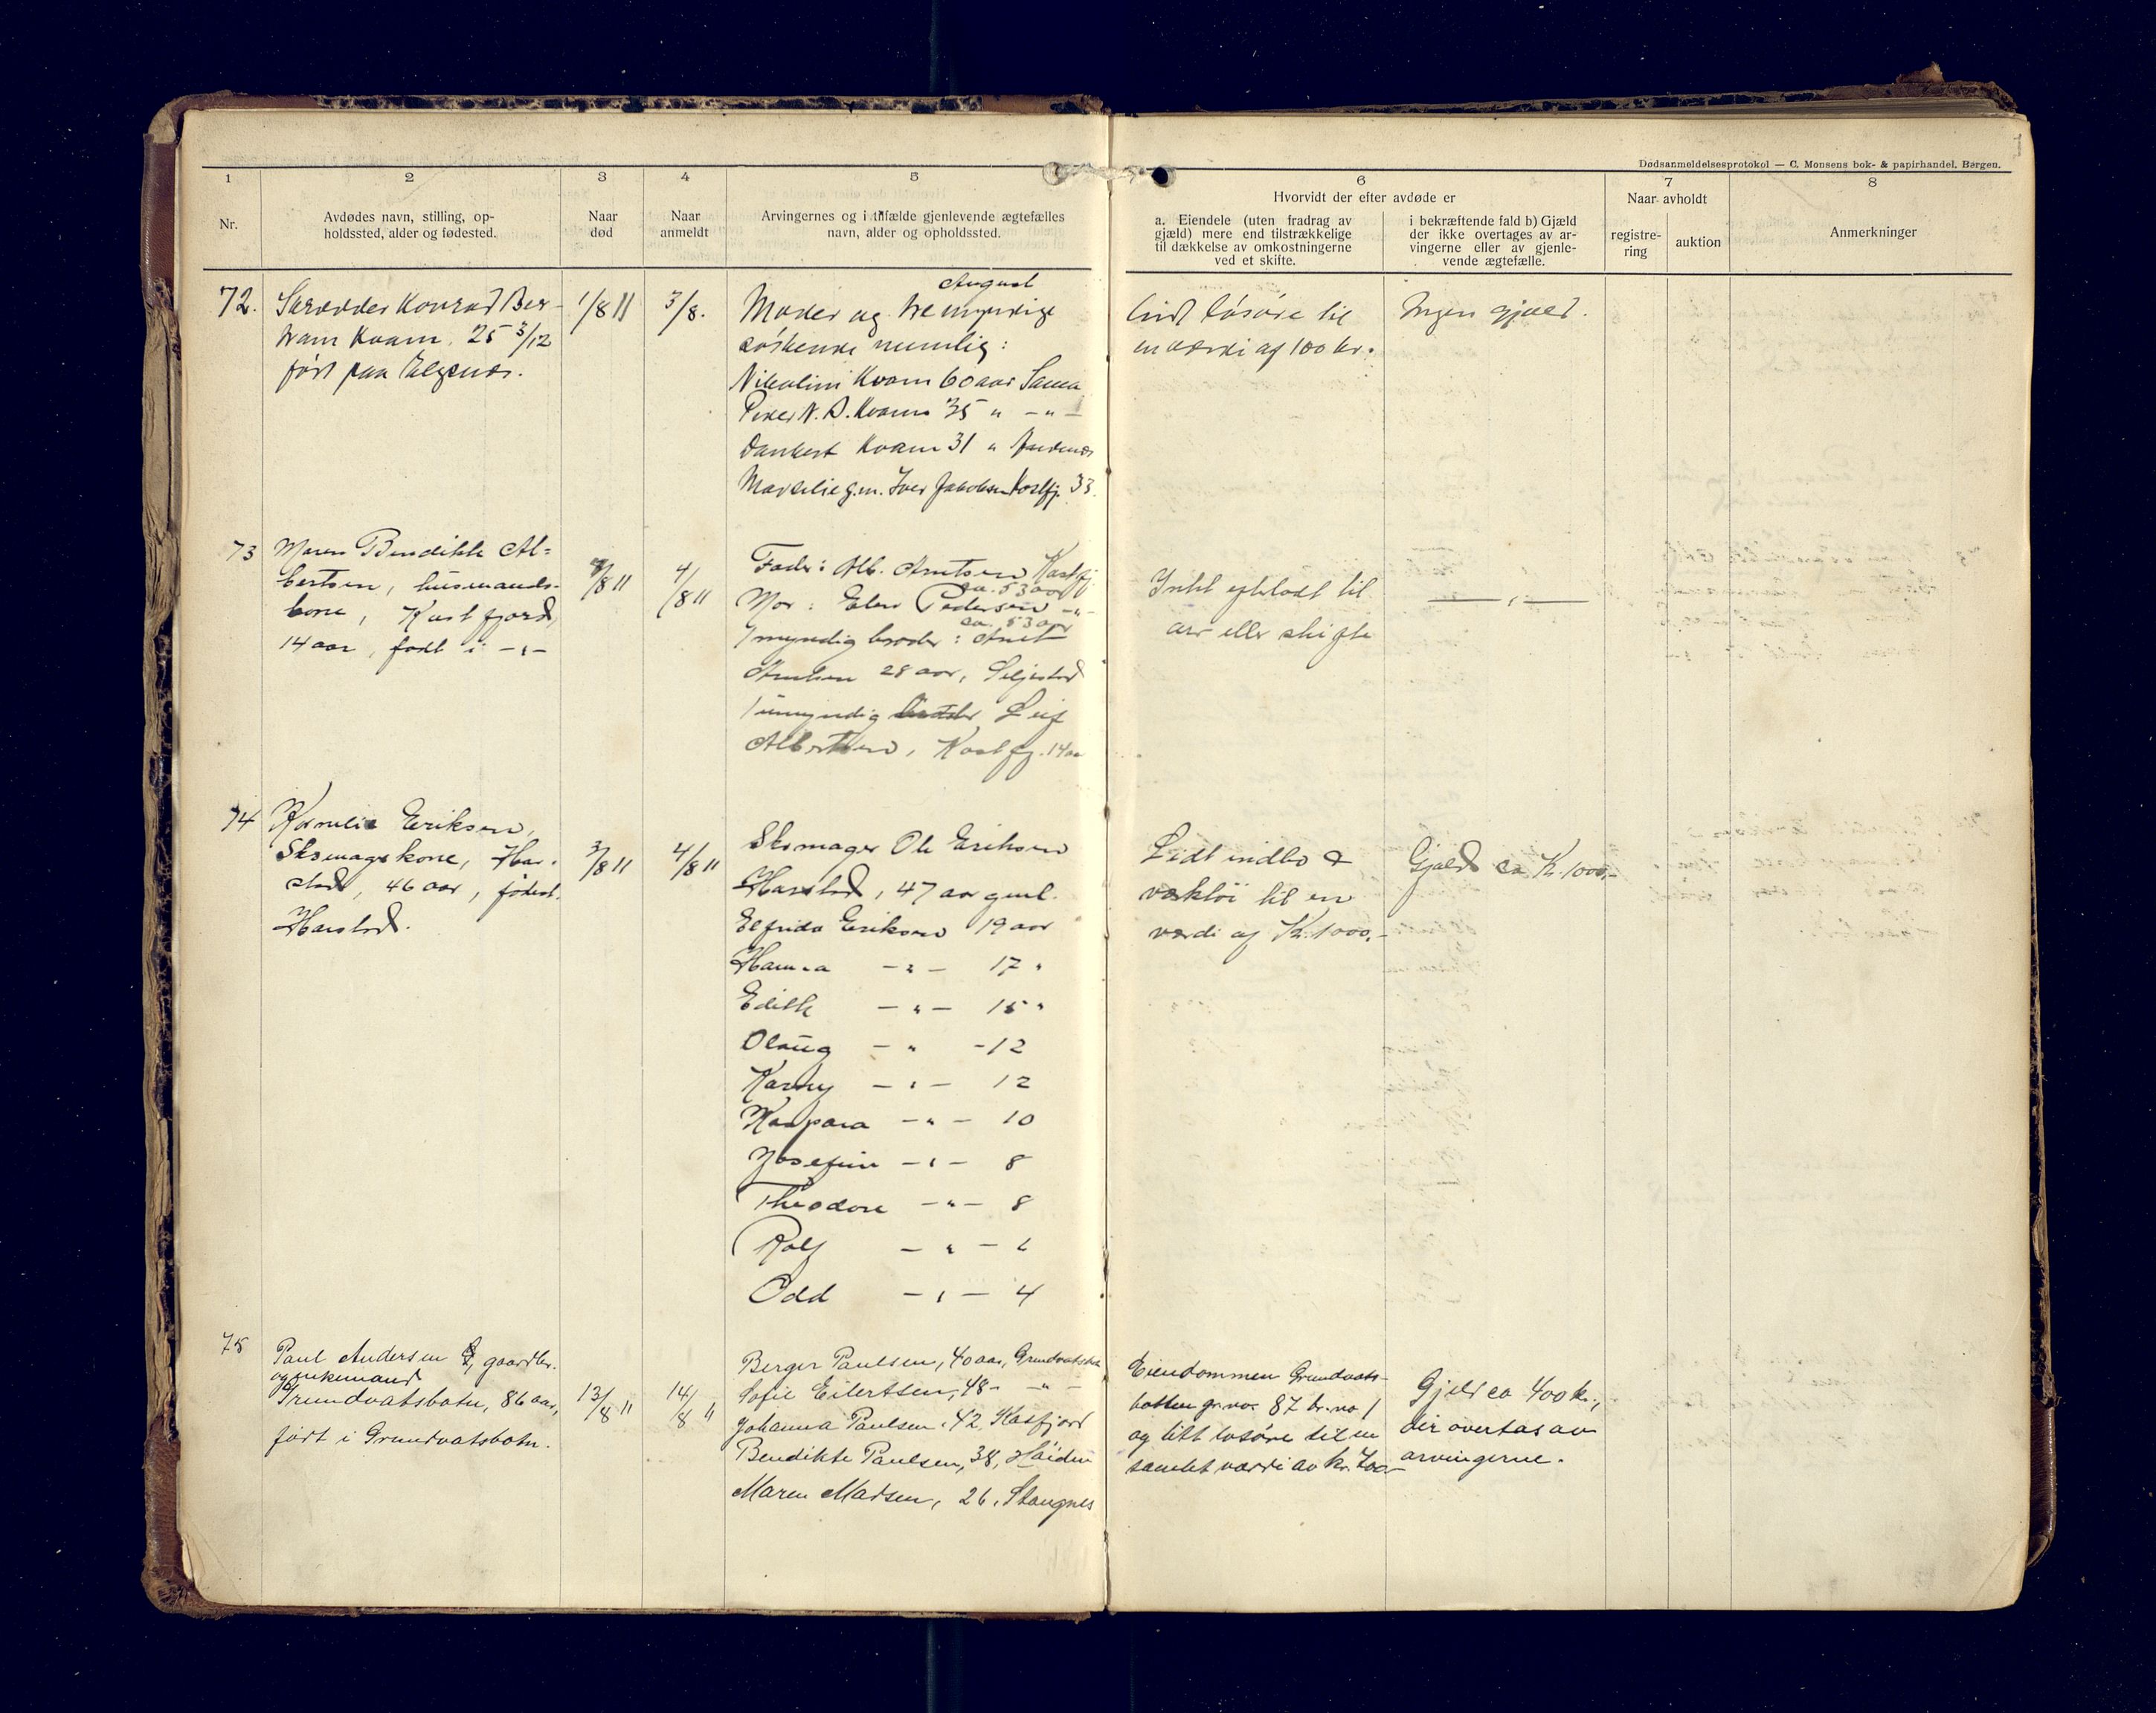 Dødsanmeldelsesprotokol — C. Monsens bok- & papirhandel, Bergen.
1
2
3
4
5
6
7
8
Nr.
Avdødes navn, stilling, op-
holdssted, alder og fødested.
Naar
død
Naar
anmeldt
Arvingernes og i tilfælde gjenlevende ægtefælles
navn, alder og opholdssted.
Hvorvidt der efter avdøde er
a. Eiendele (uten fradrag av
gjæld) mere end tilstrækkelige
til dækkelse av omkostningerne
ved et skifte.
i bekræftende fald b) Gjæld
der ikke overtages av ar-
vingerne eller av gjenle-
vende ægtefælle.
Naar avholdt
registre-
ring
auktion
Anmerkninger
August
72.
Skrædder Konrad Ber-
tram Kvam, 25 3/12
født paa Elgenæs.
1/8 11
3/8.
Moder og tre myndige
søskende nemlig:
Nikoline Kvam 60 aar Sama
Peder N. A. Kvam 35 " - " -
Dankert Kvam 31 "
g.m. Iver Jakobsen Kastfj. 33.
Lidt løsøre til
en værdi af 100 kr.
Ingen gjæld.
73
Maren Bendikte Al-
bertsen, husmands-
kone, Kastfjord,
14 aar, født i - " -
/8 11
4/8 11
Fader: Alb. Arntsen Kastfj.
ca. 53 aar
Mor: Elen Pedersen - " -
ca. 53 aar
1 myndig broder: Arnt
Arntsen 28 aar, Seljestad
1 umyndig broder Leif
Albertsen, Kastfj. 14 aar
Intet efterladt til
arv eller skifte
— " —
74
Kornelia Eriksen,
Skomagerkone, Har-
stad, 46 aar, fødest.
Harstad.
3/8 11
4/8 11
Skomager Ole Eriksen
Harstad, 47 aar gml.
Elfrida Eriksen 19 aar
Hanna - " - 17 "
Edith - " - 15 "
Olaug - " - 12
Karny - " - 12
Kaspara - " - 10
Josefine - " - 8
Theodore - " - 8
Rolf - " - 6
Odd - " - 4
Lidt indbo &
verktøi til en
værdi af Kr. 1000,-
Gjæld ca Kr. 1000,-
75
Paul Andersen, gaardbr.
og enkemand
Grundvatsbotn, 86 aar,
født i Grundvatsbotn.
13/8 11
14/8 11
Berger Paulsen, 40 aar, Grundvatsbotn
Sofie Eilertsen, 48 - " -
Johanna Paulsen, 42, Kasfjord
Bendikte Paulsen, 38, Høiden
Maren Madsen, 26, Stangnes
Eiendommen Grundvats-
botten gr. no. 87 br. no 1
og litt løsøre til en
samlet værdi av kr. 700-
Gjeld ca 400 kr.,
der overtas av
arvingerne.